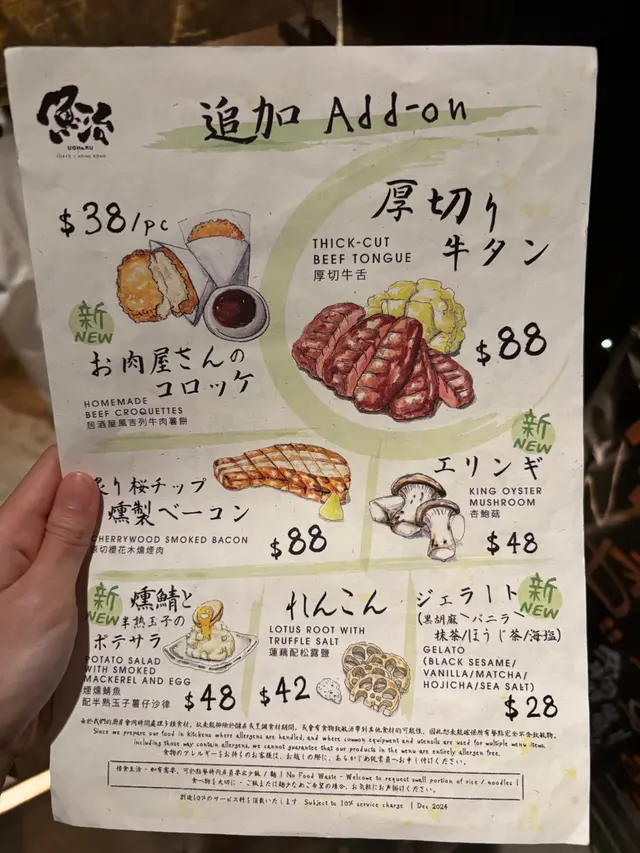 魚治
UOHARU
TOKYO / HONG KONG
追加 Add-on
$38/pc
新
NEW
お肉屋さんの
コロッケ
HOMEMADE
BEEF CROQUETTES
居酒屋風吉列牛肉薯餅
厚切り
牛タン
THICK-CUT
BEEF TONGUE
厚切牛舌
$88
炙り桜チップ
燻製ベーコン
CHERRYWOOD SMOKED BACON
厚切櫻花木燻煙肉
$88
新
NEW
エリンギ
KING OYSTER
MUSHROOM
杏鮑菇
$48
新
NEW
燻鯖と
半熟玉子の
ポテサラ
POTATO SALAD
WITH SMOKED
MACKEREL AND EGG
煙燻鯖魚
配半熟玉子薯仔沙律
$48
れんこん
LOTUS ROOT WITH
TRUFFLE SALT
蓮藕配松露鹽
$42
新
NEW
ジェラート
(黒胡麻/バニラ/
抹茶/ほうじ茶/海塩)
GELATO
(BLACK SESAME/
VANILLA/MATCHA/
HOJICHA/SEA SALT)
$28
Since we prepare our food in kitchens where allergens are handled, and where common equipment and utensils are used for multiple menu items,
including those may contain allergens, we cannot guarantee that our products in the menu are entirely allergen free.
食物のアレルギーをお持ちのお客様は、お越しの際に、あらかじめ従業員へお申し付けください。
No Food Waste - Welcome to request small portion of rice / noodles
別途10%のサービス料を頂戴いたします Subject to 10% service charge | Dec 2024